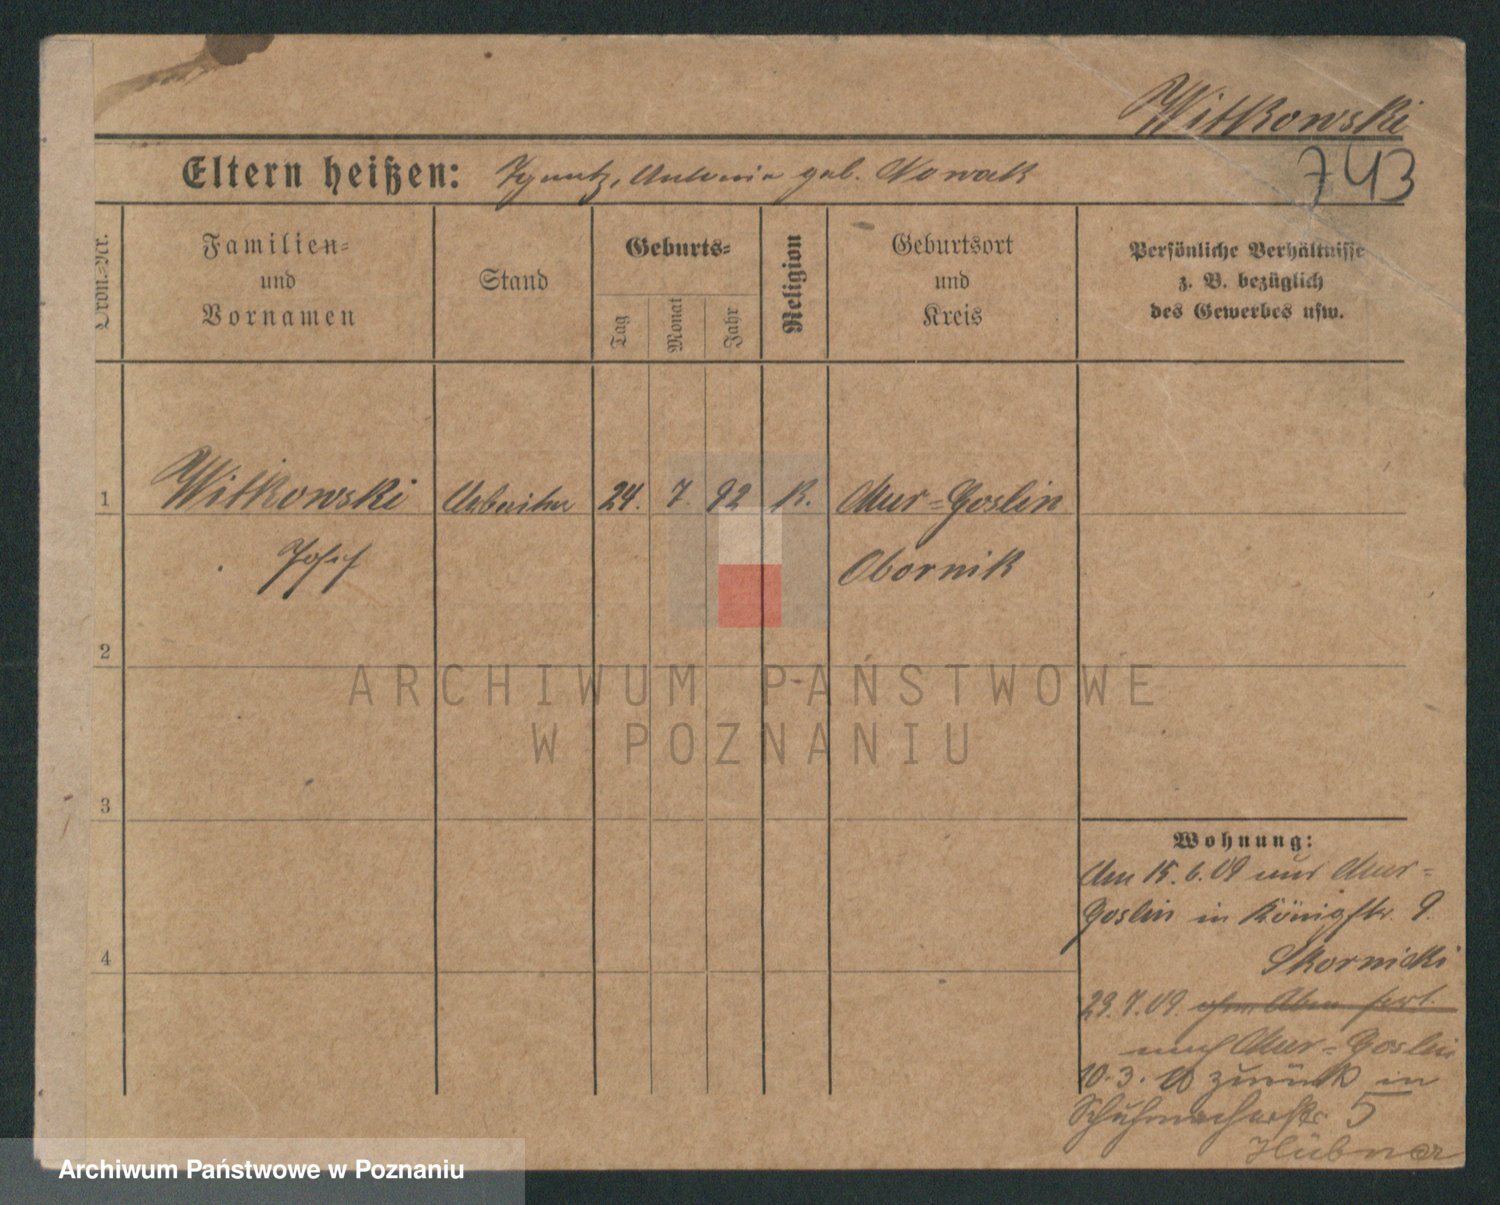 Witkowski
743
Eltern heißen: Ignatz, Antonie geb. Nowak
Ordn.-Nr.
Familien-
und
Vornamen
Stand
Geburts-
Tag
Monat
Jahr
Religion
Geburtsort
und
Kreis
Persönliche Verhältnisse
z. B. bezüglich
des Gewerbes usw.
1 Witkowski Arbeiter 24. 7. 92 K. Mur-Goslin
Josef Obornik
2
3
4
Wohnung:
Am 15.6.09 aus Mur-
Goslin in Königstr. 9.
Skornicki
29.7.09.
nach Mur-Goslin
10.3.10 zurück in
Schuhmacherstr. 5
Hübner
ARCHIWUM PAŃSTWOWE
W POZNANIU
Archiwum Państwowe w Poznaniu